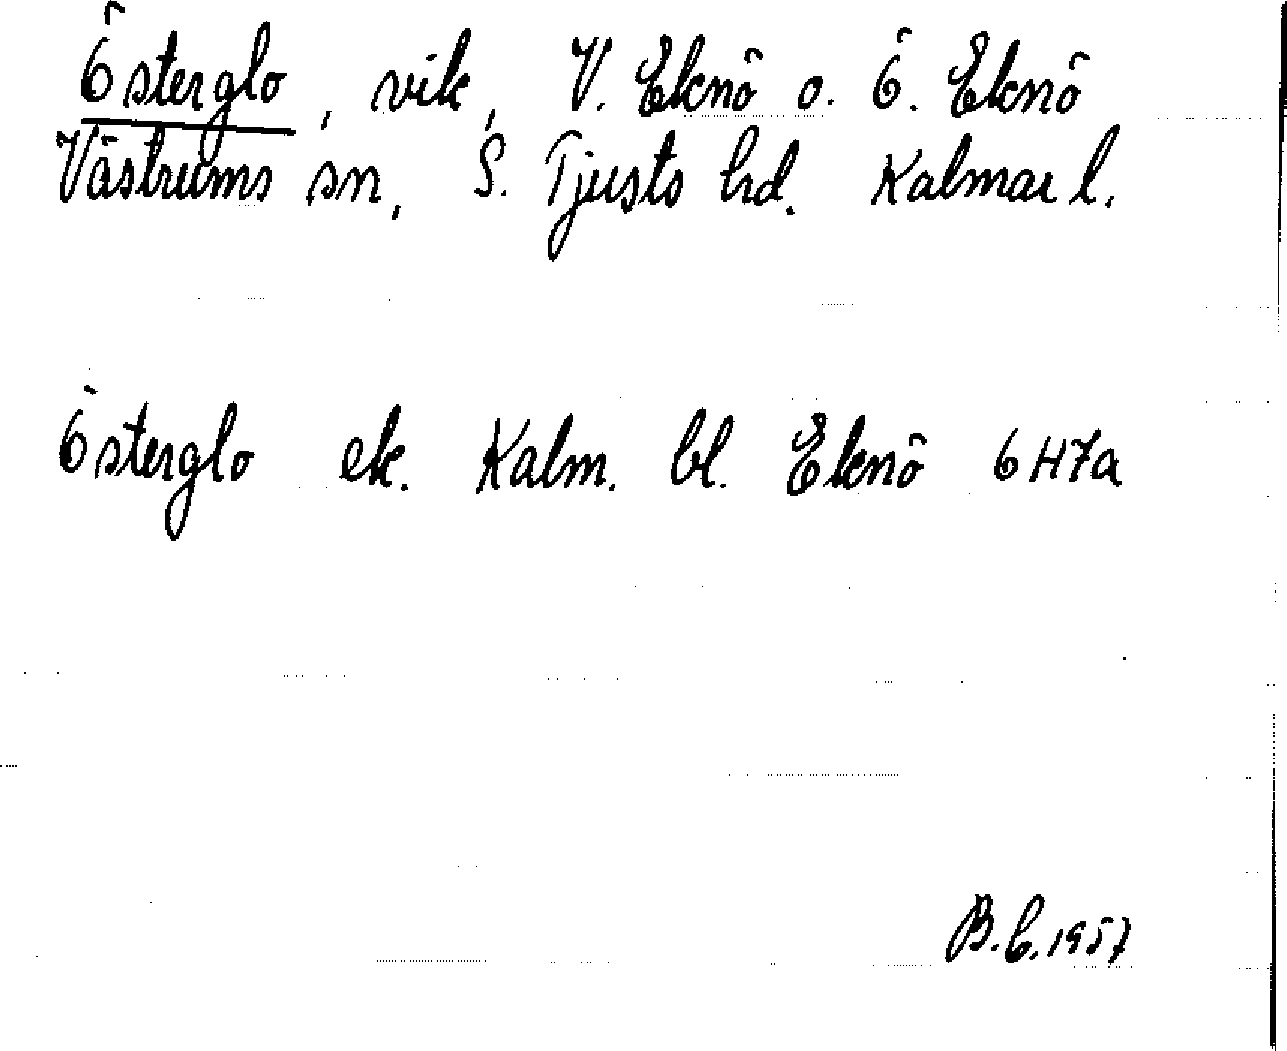 Österglo, vik, V. Eknö o. Ö. Eknö
Västrums sn, S. Tjusts hd. Kalmar l.
Österglo ek. Kalm. bl. Eknö 6H7a
B.C. 1957